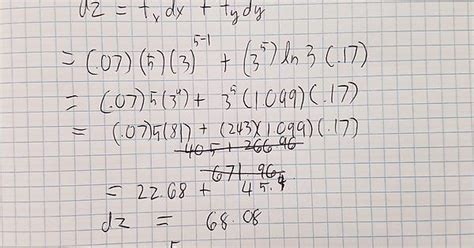 dz = fx dx + fy dy
= (.07)(5)(3)^5-1 + (3^5) ln 3 (.17)
= (.07) 5 (3^4) + 3^5 (1.099)(.17)
= (.07) 5 (81) + (243)(1.099)(.17)
40.5 + 266.96
671.96
= 22.68 + 45.4
dz = 68.08